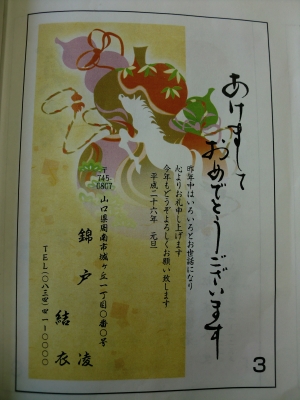 あけまして
おめでとうございます
昨年中はいろいろとお世話になり
心よりお礼申し上げます
今年もどうぞよろしくお願い致します
平成二十六年　元旦
〒745-0807
山口県周南市城ヶ丘一丁目〇番〇号
錦戸　凌
結衣
TEL(〇八三四)四一-〇〇〇〇
3